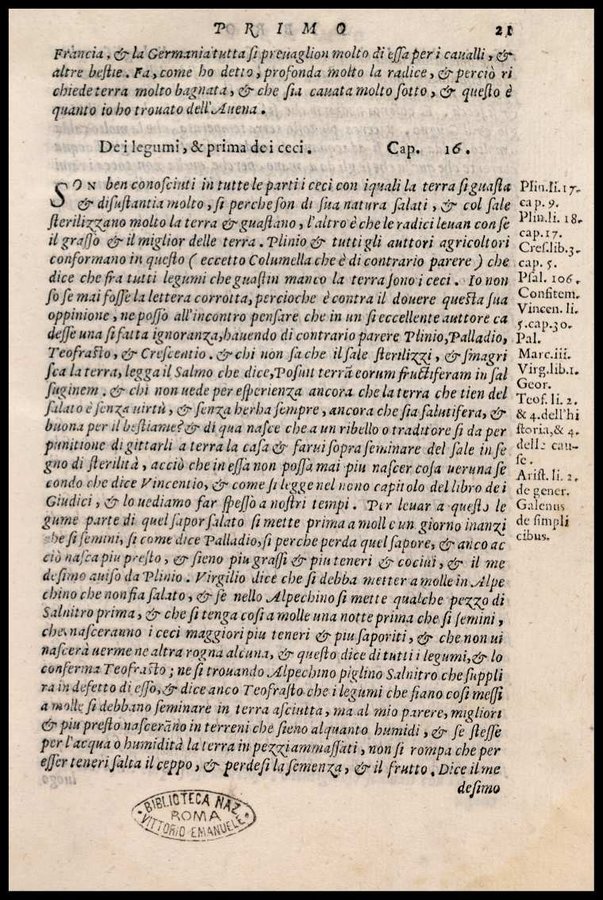 PRIMO 21
Francia, & la Germania tutta si preuaglion molto di essa per i caualli, &
altre bestie. Fa, come ho detto, profonda molto la radice, & perciò ri
chiede terra molto bagnata, & che sia cauata molto sotto, & questo è
quanto io ho trouato dell'Auena.
De i legumi, & prima de i ceci. Cap. 16.
SON ben conosciuti in tutte le parti i ceci con iquali la terra si guasta
& disustantia molto, si perche son di sua natura salati, & col sale
sterilizzano molto la terra & guastano, l'altro è che le radici leuan con se
il grasso & il miglior delle terra. Plinio & tutti gli auttori agricoltori
conformano in questo (eccetto Columella che è di contrario parere) che
dice che fra tutti legumi che guastin manco la terra sono i ceci. Io non
so se mai fosse la lettera corrotta, percioche è contra il douere questa sua
oppinione, ne posso all'incontro pensare che in un si eccellente auttore ca
desse una si fatta ignoranza, hauendo di contrario parere Plinio, Palladio,
Teofrasto, & Crescentio. & chi non sa che il sale sterilizzi, & smagri
sca la terra, legga il Salmo che dice, Posuit terrã eorum fructiferam in sal
suginem. & chi non uede per esperienza ancora che la terra che tien del
salato è senza uirtù, & senza herba sempre, ancora che sia salutifera, &
buona per il bestiame? & di qua nasce che a un ribello o traditore si da per
punitione di gittarli a terra la casa & farui sopra seminare del sale in se
gno di sterilità, acciò che in essa non possa mai piu nascer cosa ueruna se
condo che dice Vincentio, & come si legge nel nono capitolo del libro de i
Giudici, & lo uediamo far spesso a nostri tempi. Per leuar a questo le
gume parte di quel sapor salato si mette prima a molle un giorno inanzi
che si semini, si come dice Palladio, si perche perda quel sapore, & anco ac
ciò nasca piu presto, & sieno piu grassi & piu teneri & cocini, & il me
desimo auiso da Plinio. Virgilio dice che si debba metter a molle in Alpe
chino che non sia salato, & se nello Alpechino si mette qualche pezzo di
Salnitro prima, & che si tenga cosi a molle una notte prima che si semini,
che nasceranno i ceci maggiori piu teneri & piu saporiti, & che non ui
nascerà uerme ne altra rogna alcuna, & questo dice di tutti i legumi, & lo
conferma Teofrasto; ne si trouando Alpechino piglino Salnitro che suppli
ra in defetto di esso, & dice anco Teofrasto che i legumi che siano cosi messi
a molle si debbano seminare in terra asciutta, ma al mio parere, migliori
& piu presto nasceràno in terreni che sieno alquanto humidi, & se stesse
per l'acqua o humidità la terra in pezzi ammassati, non si rompa che per
esser teneri salta il ceppo, & perdesi la semenza, & il frutto. Dice il me
desimo
Plin. li. 17.
cap. 9.
Plin. li. 18.
cap. 17.
Cres. lib. 3.
cap. 5.
Psal. 106.
Confitem.
Vincen. li.
5. cap. 30.
Pal.
Marc. iii.
Virg. lib. 1.
Geor.
Teof. li. 2.
& 4. dell'hi
storia, & 4.
delle cau-
se.
Arist. li. 2.
de gener.
Galenus
de simpli
cibus.
BIBLIOTECA NAZ
ROMA
VITTORIO EMANUELE